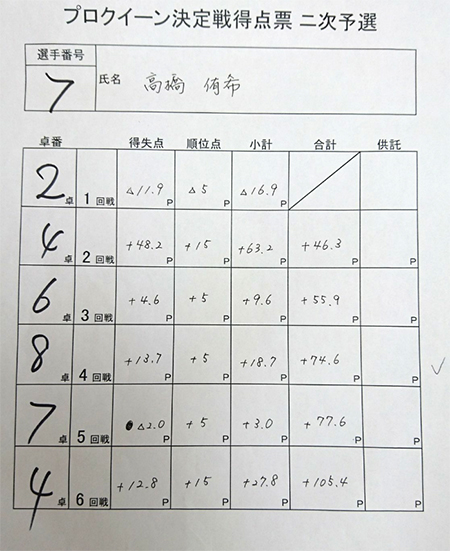 プロクイーン決定戦得点票 二次予選
選手番号 氏名
7 高橋 侑希
卓番 得失点 順位点 小計 合計 供託
2卓 1回戦 △11.9P △5P △16.9P
4卓 2回戦 +48.2P +15P +63.2P +46.3P P
6卓 3回戦 +4.6P +5P +9.6P +55.9P P
8卓 4回戦 +13.7P +5P +18.7P +74.6P P
7卓 5回戦 △2.0P +5P +3.0P +77.6P P
4卓 6回戦 +12.8P +15P +27.8P +105.4P P